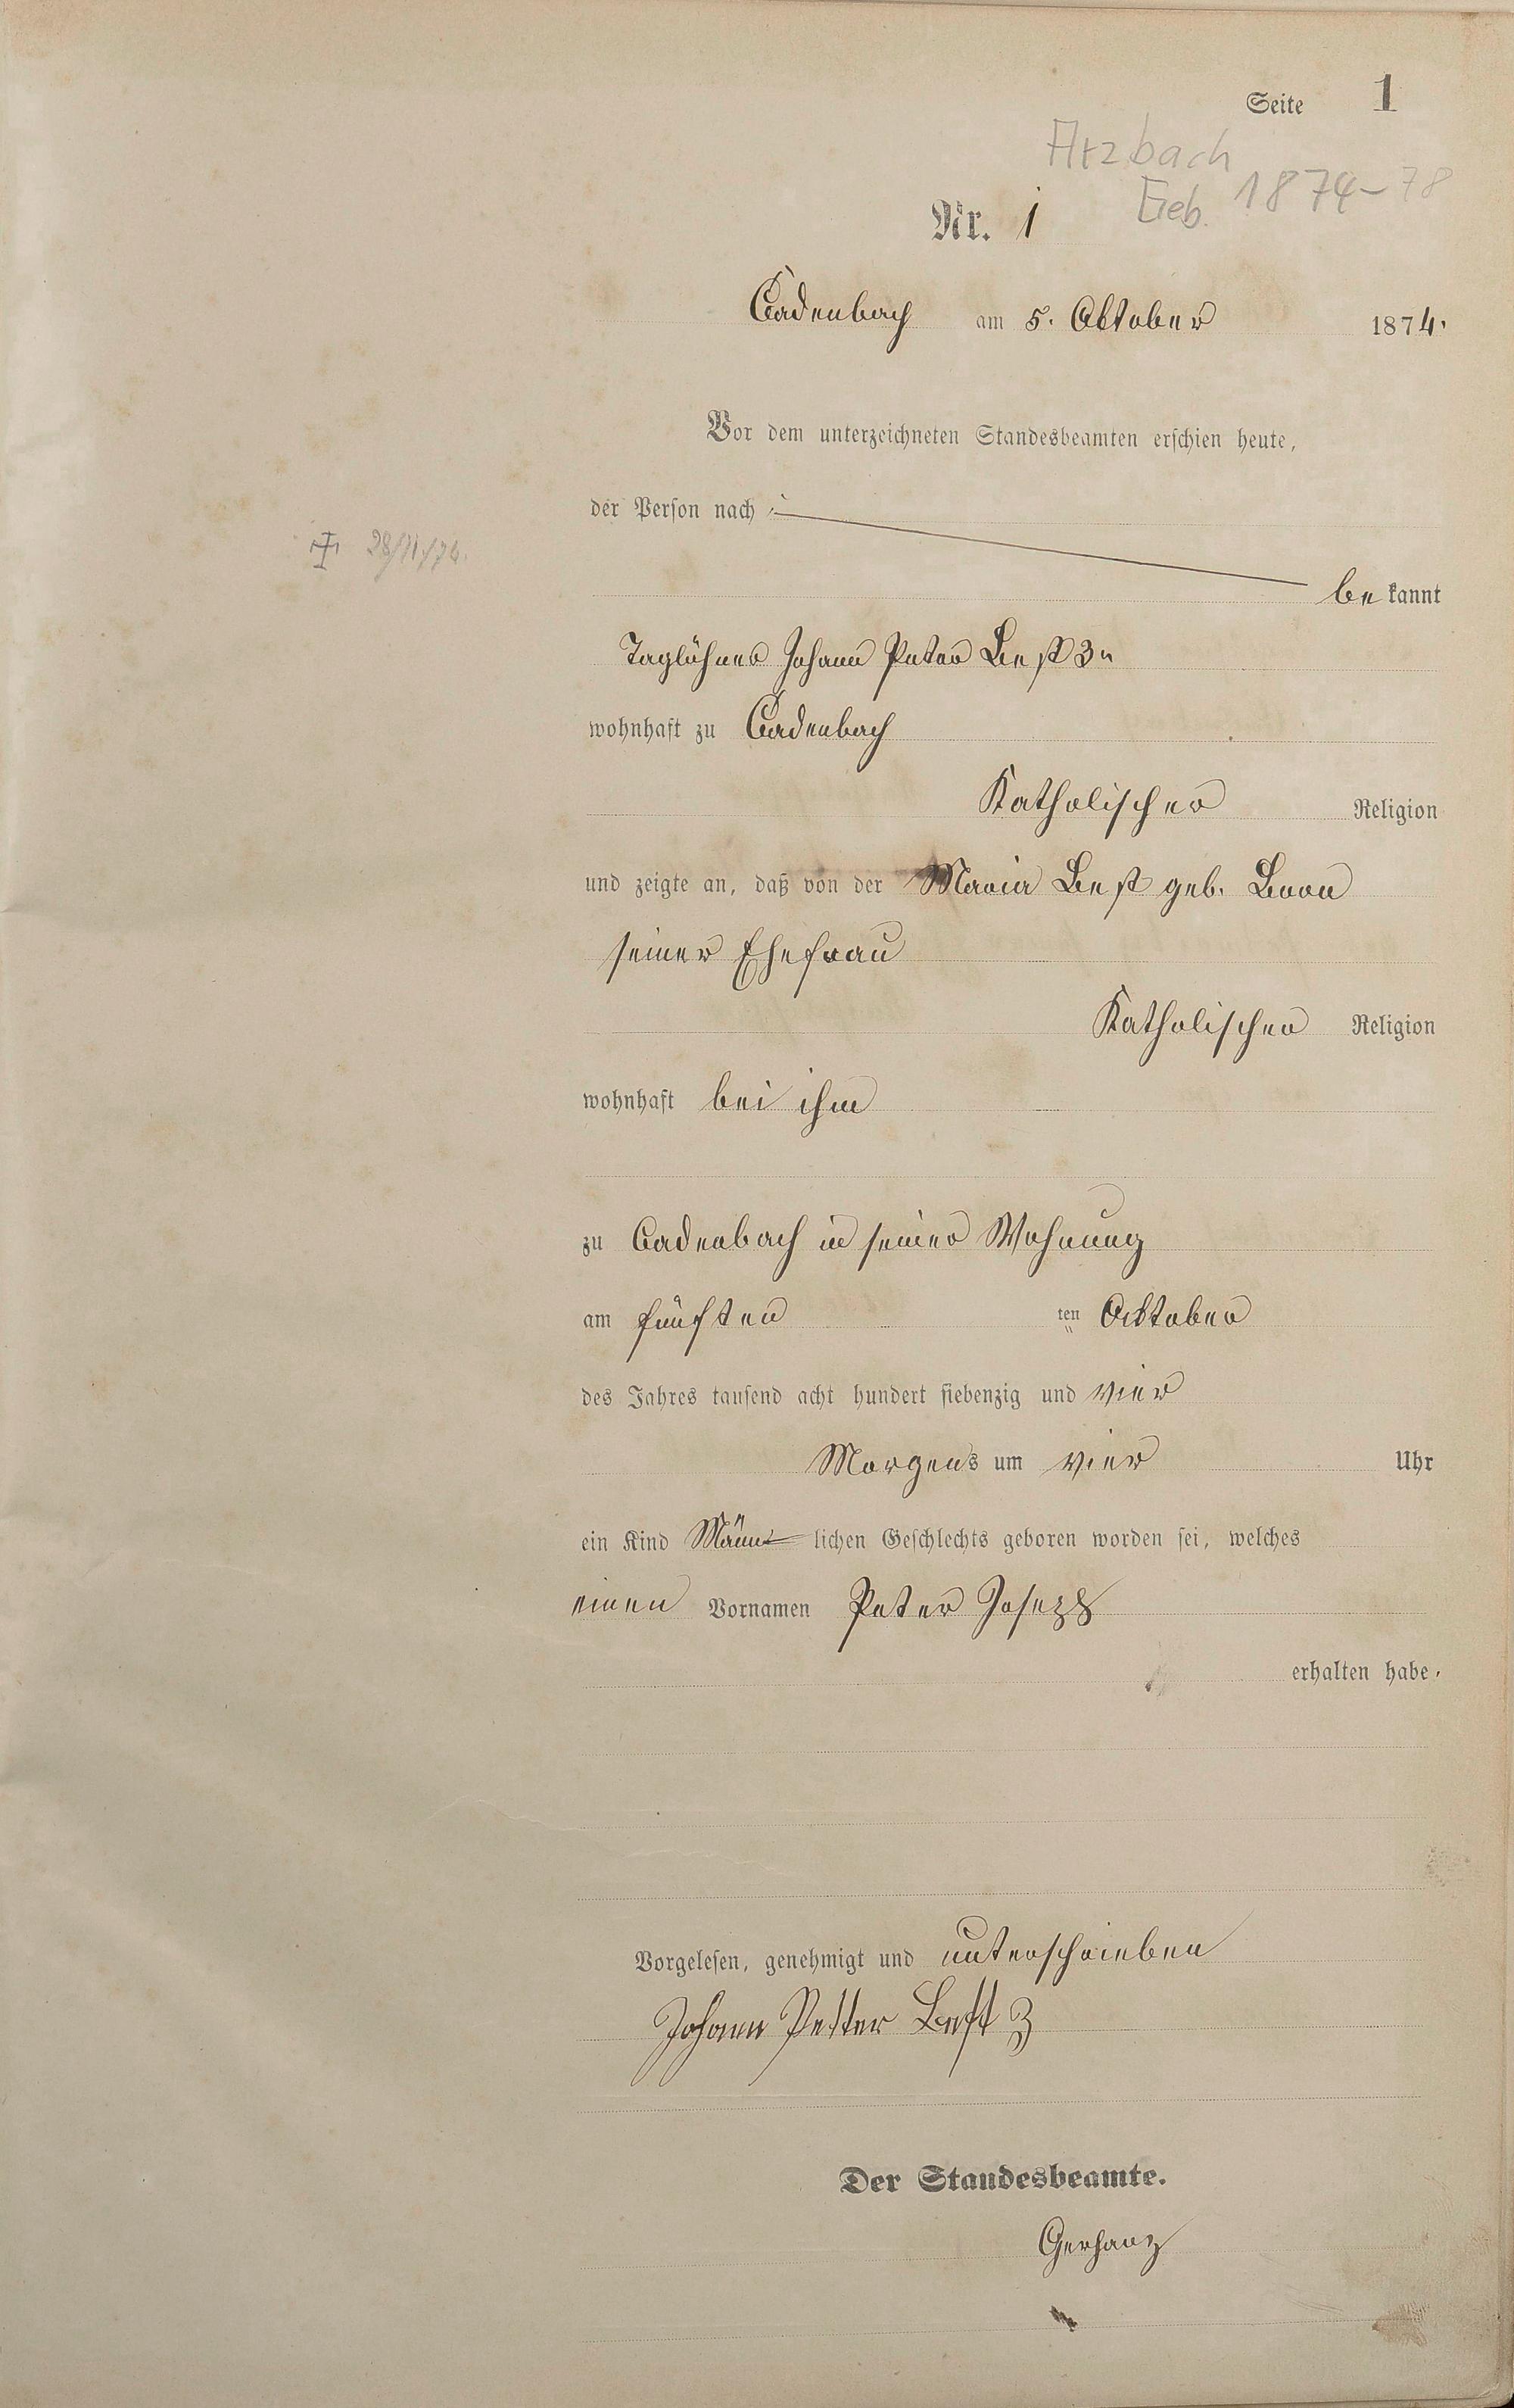 Seite 1
Arzbach
Geb. 1874-78
Nr. 1
Cadenbach am 5. Oktober 1874.
Vor dem unterzeichneten Standesbeamten erschien heute,
der Person nach
† 28/11/74.
be kannt
Taglöhner Johann Peter Best 3r
wohnhaft zu Cadenbach
Katholischer Religion
und zeigte an, daß von der Maria Best geb.
seiner Ehefrau
Katholischer Religion
wohnhaft bei ihm
zu Cadenbach in seiner Wohnung
am fünften ten Oktober
des Jahres tausend acht hundert siebenzig und vier
Morgens um vier Uhr
ein Kind Männ lichen Geschlechts geboren worden sei, welches
einen Vornamen Peter Joseph
erhalten habe.
Vorgelesen, genehmigt und unterschrieben
Johann Petter Best 3
Der Standesbeamte.
Gerhanz